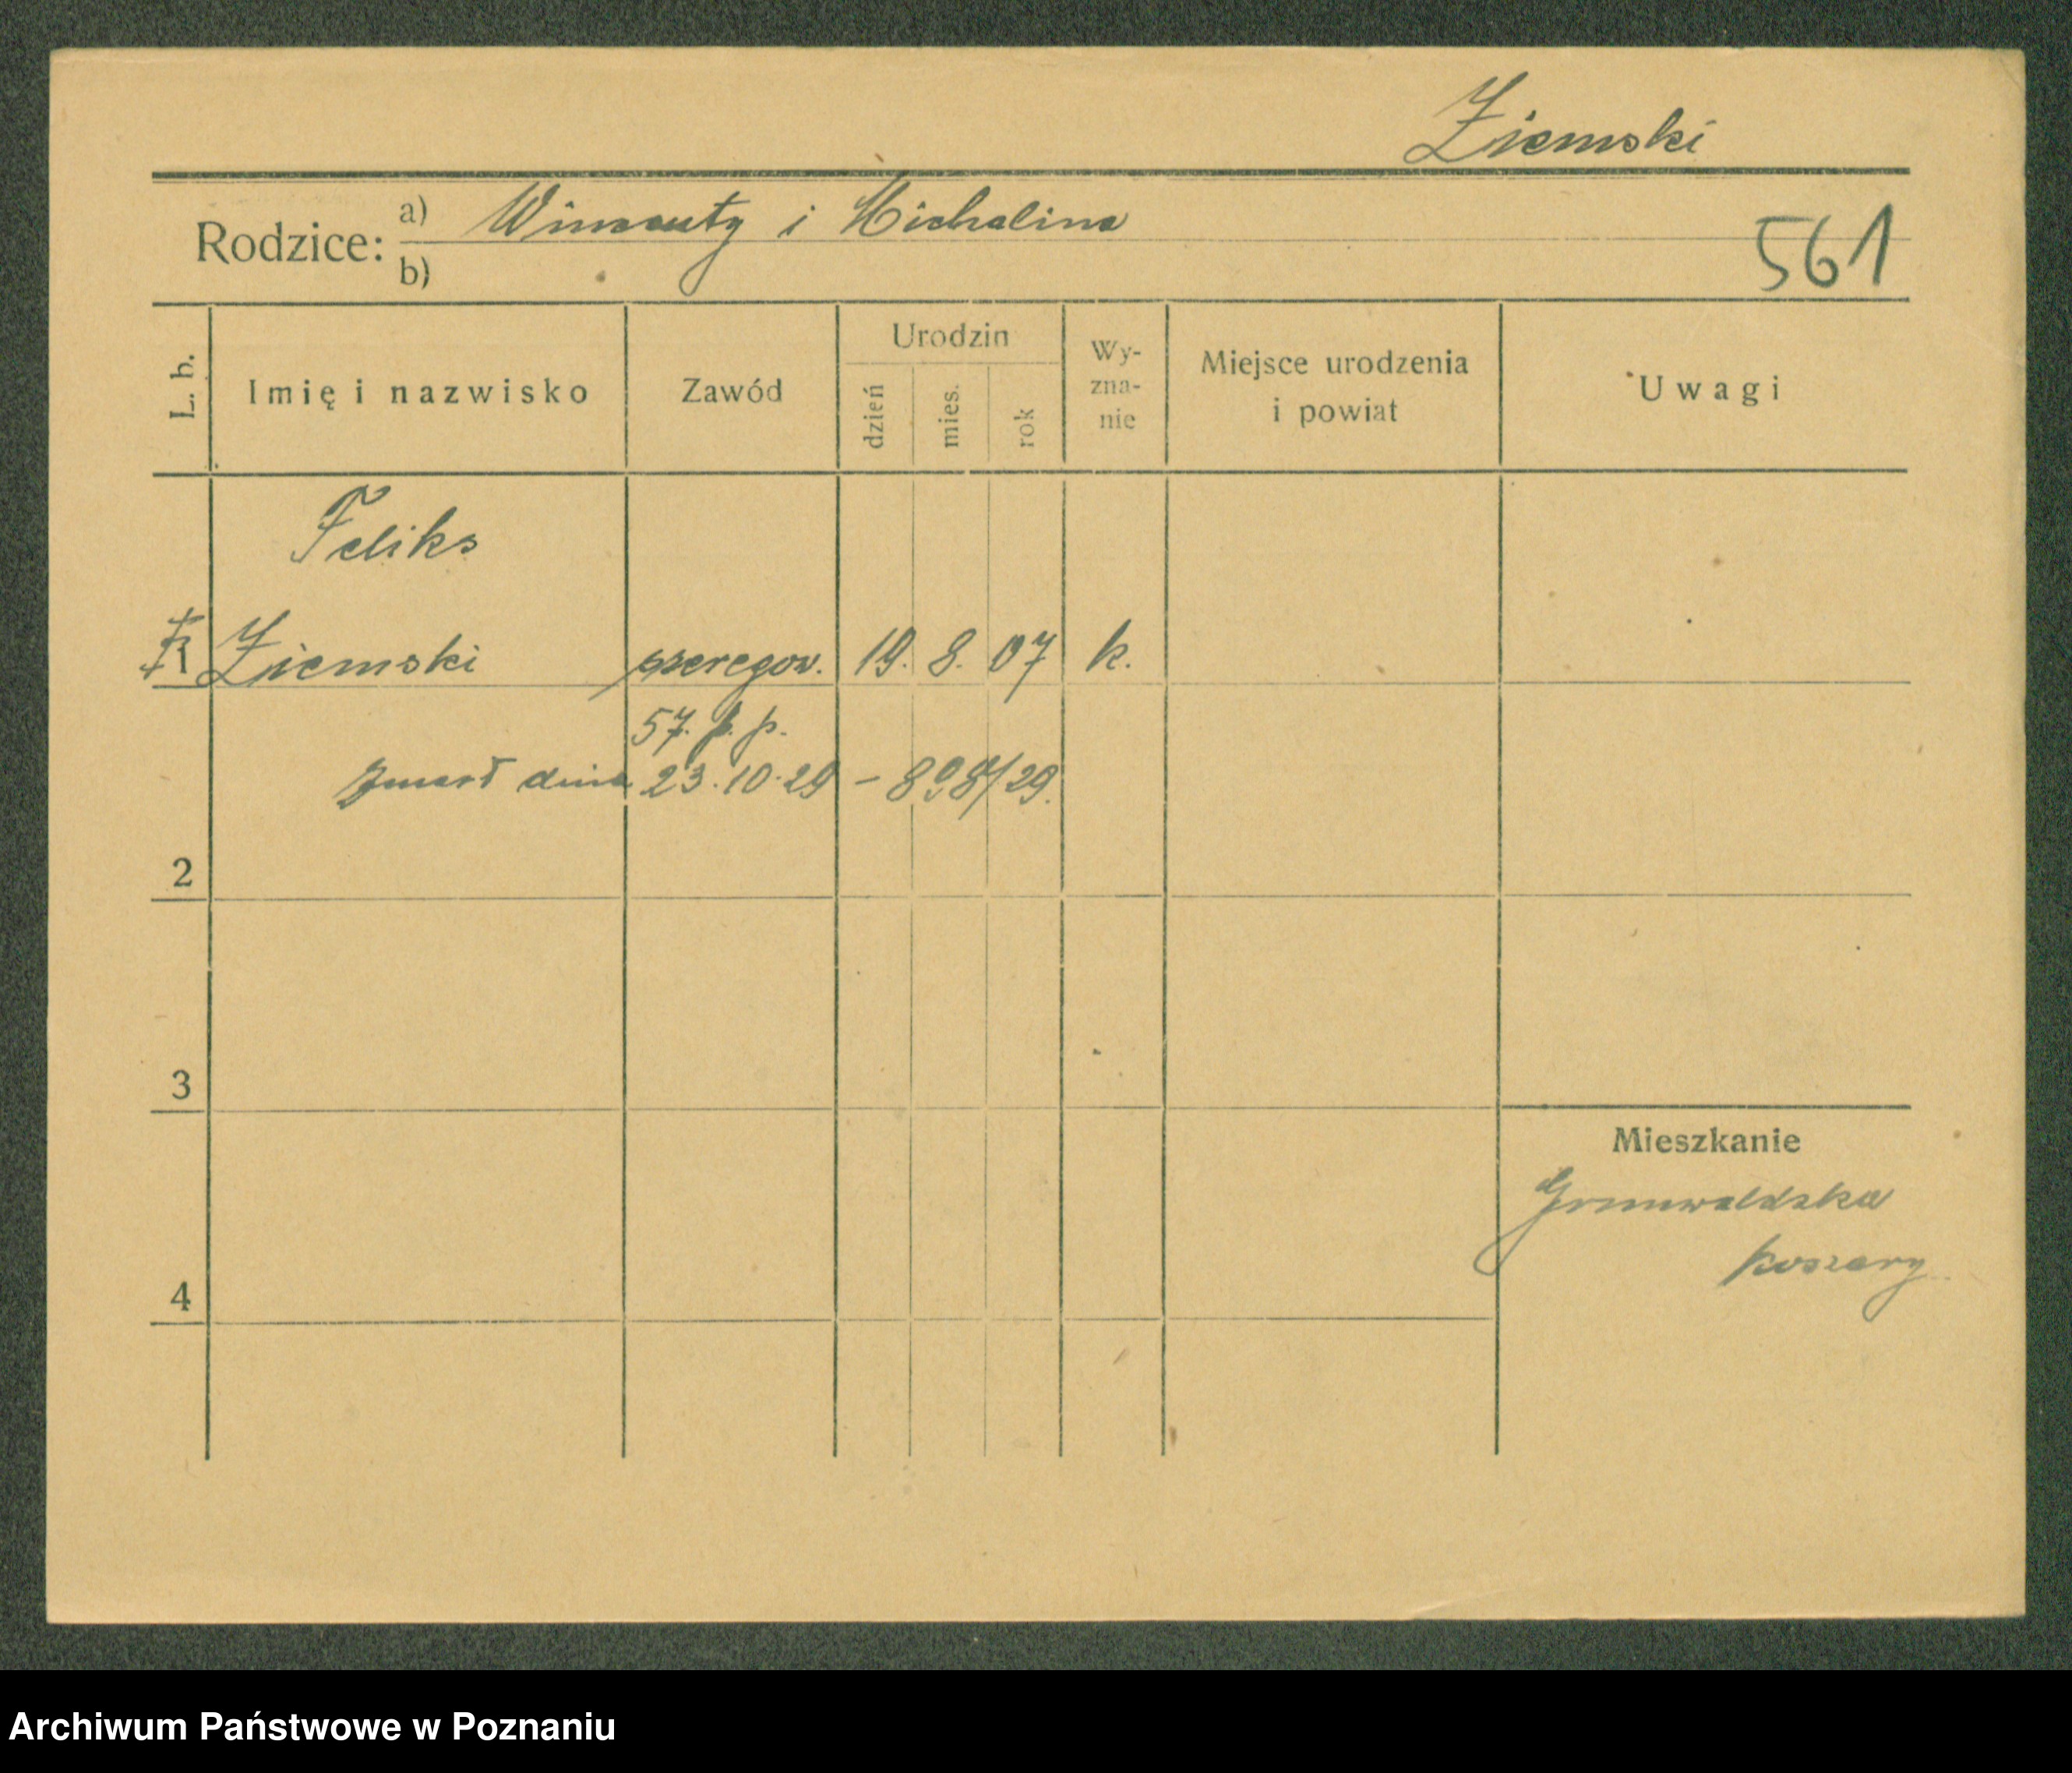 Ziemski
Rodzice: a) Wincenty i Michalina
b)
561
L. b.
Imię i nazwisko
Zawód
Urodzin
dzień
mies.
rok
Wy-
zna-
nie
Miejsce urodzenia
i powiat
Uwagi
Feliks
Ziemski szeregow. 19. 8. 07 k.
57. p. p.
zmarł dnia 23.10.29 – 898/29.
2
3
4
Mieszkanie
Grunwaldzka
koszary
Archiwum Państwowe w Poznaniu